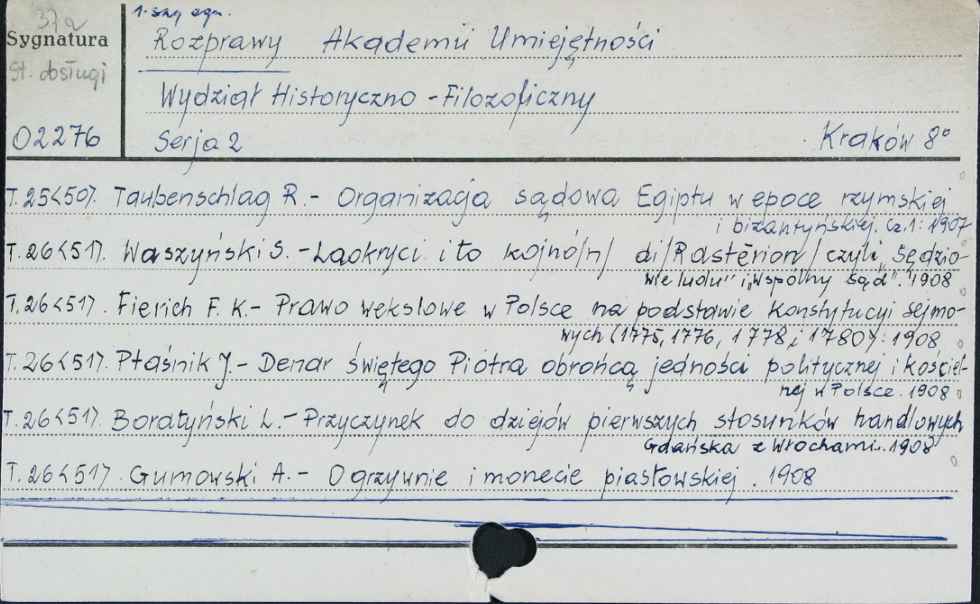 37a
1-szy egz.
Sygnatura
Rozprawy Akademii Umiejętności
St. obsługi
Wydział Historyczno - Filozoficzny
02276
Serja 2
Kraków 8°
T.25<50>. Taubenschlag R. - Organizacja sądowa Egiptu w epoce rzymskiej
i bizantyńskiej. Cz.1: 1907
T.26<51>. Waszyński S. - Laokryci i to kojnó/n/ di/Rastērion/czyli „Sędzio-
wie ludu" i „Wspólny sąd". 1908
T.26<51>. Fierich F. K. - Prawo wekslowe w Polsce na podstawie Konstytucyi sejmo-
wych (1775, 1776, 1778 i 1780): 1908
T.26<51>. Ptaśnik J. - Denar świętego Piotra obrońcą jedności politycznej i kościel-
nej w Polsce. 1908
T.26<51>. Boratyński L. - Przyczynek do dziejów pierwszych stosunków handlowych
Gdańska z Włochami. 1908
T.26<51>. Gumowski A. - O grzywnie i monecie piastowskiej. 1908